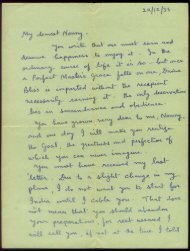 24/12/33
My dearest Nonny,
You write that one must earn and
deserve happiness to enjoy it. In the
ordinary course of life it is so - but once
a Perfect Master's Grace falls on one, Divine
Bliss is imparted without the recipient
necessarily earning it. The only deservation
lies in surrenderance and obedience.
You have grown very dear to me, Nonny,
and one day I will make you realize
the Goal, the greatness and perfection of
which you can never imagine.
You must have received my last
letter. Due to a slight change in my
plans, I do not want you to start for
India until I cable you. That does
not mean that you should abandon
your preparations, for rest assured I
will call you, if not at the time I told